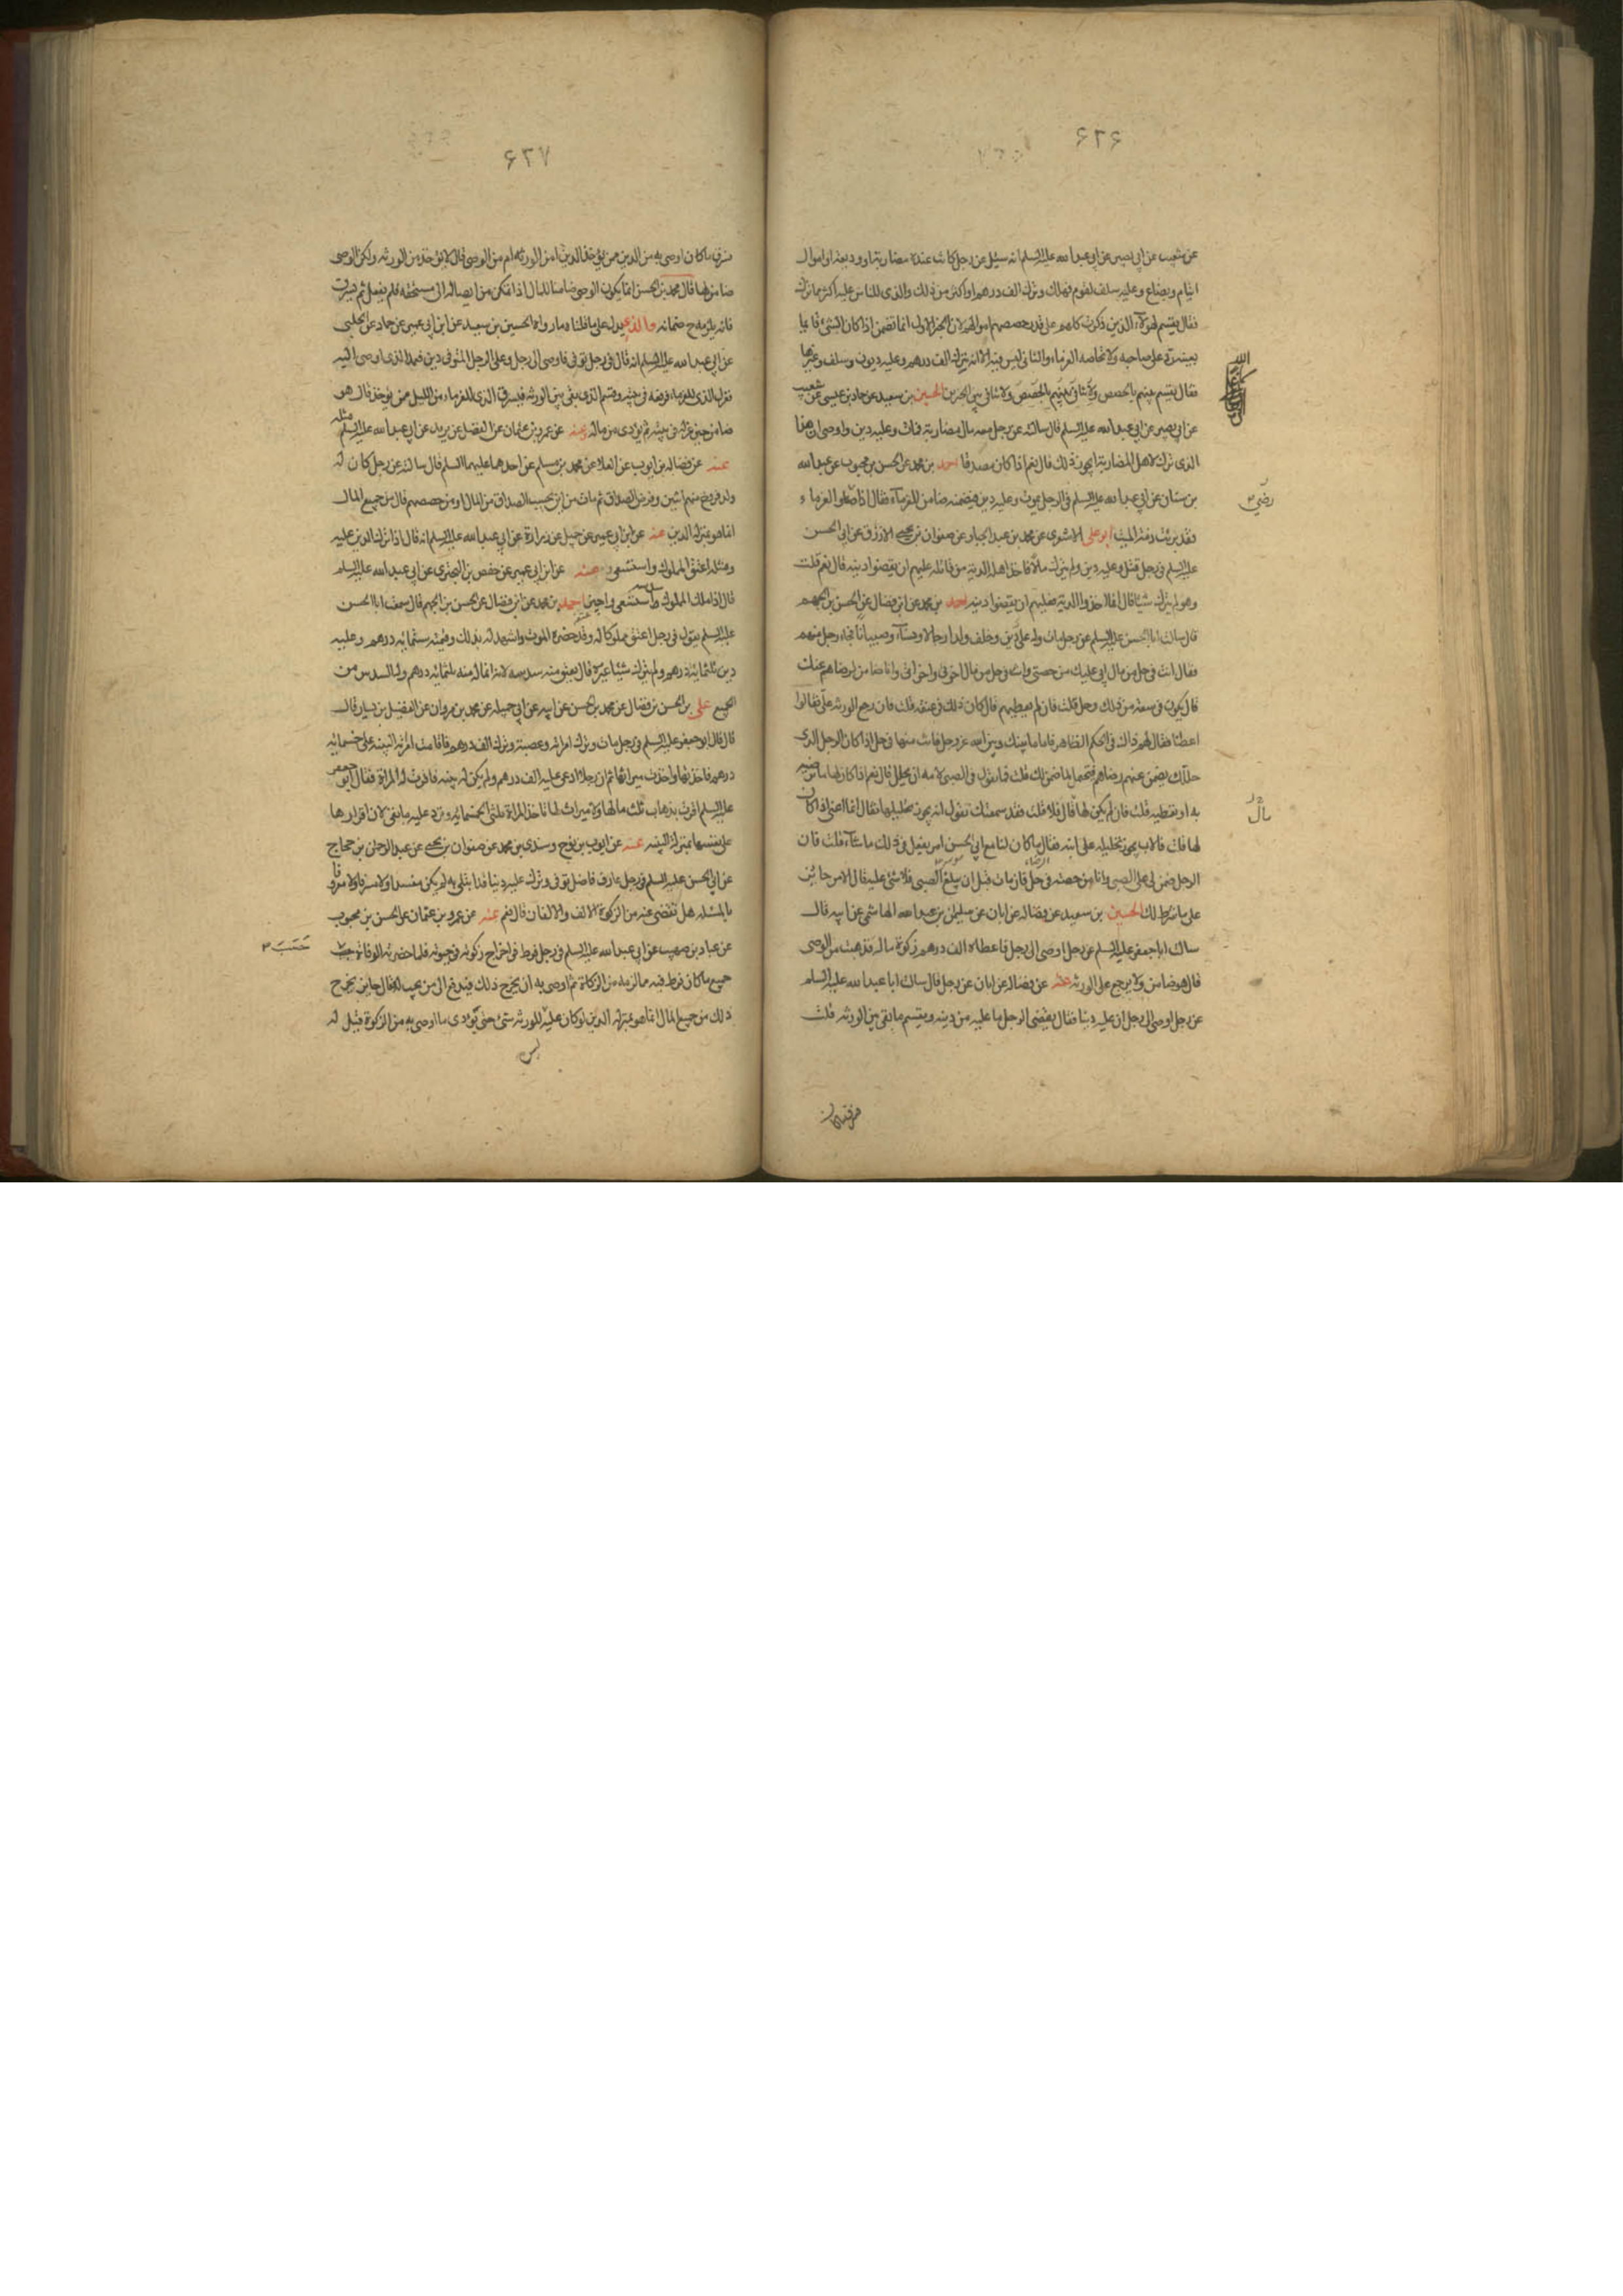 ۶۲۶
عن شعيب عن ابي بصير عن ابي عبد الله عليه السلم انه سئل عن رجل كانت عنده مضاربة او وديعة او اموال
ايتام وبضايع وعليه سلف لقوم فهلك وترك الف درهم او اكثر من ذلك والذى للناس عليه اكثر مما ترك
فقال يقسم لهؤلاء الذين ذكرت كلهم على قدر حصصهم اموالهم لان الخبر الاول انما تضمن اذا كان الشئ قايما
بعينه رد على صاحبه ولا تحاصه الغرماء والثاني ليس فيه الا انه ترك الف درهم وعليه ديون وسلف وغيرها
فقال يقسم بينهم بالحصص ولا تنافي بين الخبرين الحسين بن سعيد عن حماد بن عيسى عن شعيب
عن ابي بصير عن ابي عبد الله عليه السلم قال سالته عن رجل معه مال مضاربة فمات وعليه دين واوصى ان هذا
الذى ترك لاهل المضاربة ايجوز ذلك قال نعم اذا كان مصدقا احمد بن محمد عن الحسن بن محبوب عن عبد الله
بن سنان عن ابي عبد الله عليه السلم في الرجل يموت وعليه دين فيضمنه ضامن للغرماء فقال اذا رضى الغرماء
رضي
فقد برئت ذمة الميت ابو علي الاشعرى عن محمد بن عبد الجبار عن صفوان بن يحيى الازرق عن ابي الحسن
عليه السلم في رجل قتل وعليه دين ولم يترك مالا فاخذ اهله الدية من قاتله عليهم ان يقضوا دينه قال نعم قلت
وهو لم يترك شيئا قال انما اخذوا الدية فعليهم ان يقضوا دينه احمد بن محمد عن ابن فضال عن الحسن بن الجهم
قال سالت ابا الحسن عليه السلم عن رجل مات وله على دين وخلف ولدا رجالا ونساء وصبيانا فجاء رجل منهم
فقال انت في حل من مال ابي عليك من حصتي وانت في حل من مال اخوتي واخواتي وانا ضامن لرضاهم عنك
قال يكون في سعة من ذلك وحل قلت فان لم يعطهم قال كان ذلك في عنقه قلت فان رجع الورثه على فقالوا
اعطنا فقال لهم ذلك في الحكم الظاهر فاما ما بينك وبين الله عز وجل فانت منها في حل اذا كان الرجل الذى
حللك يضمن عنهم رضاهم فيحتمل لما ضمن لك قلت فما تقول في الصبي لامه ان تحلل قال نعم اذا كان لها ما ترضيه
به او تعطيه قلت فان لم يكن لها قال فلا قلت فقد سمعتك تقول انه يجوز تحليلها فقال انما اعني اذا كان
مال
لها قلت فالاب يجوز تحليله على ابنه فقال ما كان لنا مع ابي الحسن امر يفعل في ذلك ما شاء قلت فان
الرجل ضمن لي على الصبي وانا من حصته في حل فان مات قبل ان يبلغ الصبي فلا شئ عليه قال الامر جائز
على ما شرط لك الحسين بن سعيد عن فضاله عن ابان عن سليمن بن عبد الله الهاشمي عن ابيه قال
سالت ابا جعفر عليه السلم عن رجل اوصى الى رجل فاعطاه الف درهم زكوة ماله فذهبت من الوصى
قال هو ضامن ولا يرجع على الورثه عنه عن فضاله عن ابان عن رجل قال سالت ابا عبد الله عليه السلم
عن رجل اوصى الى رجل ان عليه دينا فقال يقضى الرجل ما عليه من دينه ويقسم ما بقى بين الورثه قلت
۶۲۷
سرق ما كان اوصى به من الدين ممن يؤخذ الدين امن الورثه ام من الوصى قال لا يؤخذ من الورثه ولكن الوصى
ضامن لها قال محمد بن الحسن انما يكون الوصى ضامنا للمال اذا تمكن من ايصاله الى مستحقه فلم يفعل ثم سرق
فانه يلزمه ح ضمانه والذى يدل على ما قلناه ما رواه الحسين بن سعيد عن ابن ابي عمير عن حماد عن الحلبي
عن ابي عبد الله عليه السلم انه قال في رجل توفى فاوصى الى رجل وعلى الرجل المتوفى دين فعمد الذى اوصى اليه
فعزل الذى للغرماء فرفعه في بيته وقسم الذى بقى بين الورثه فيسرق الذى للغرماء من الليل ممن يؤخذ قال هو
ضامن حين عزله في بيته ثم يؤدى من ماله عنه عن عمرو بن عثمان عن المفضل عن يزيد عن ابي عبد الله عليه السلم مثله
عنه عن فضاله بن ايوب عن العلا عن محمد بن مسلم عن احدهما عليهما السلم قال سالته عن رجل كان له
ولد فزوج منهم اثنين وفرض الصداق ثم مات من اين يحسب الصداق من المال او من حصصهم قال من جميع المال
انما هو بمنزلة الدين عنه عن ابن ابي عمير عن جميل عن زرارة عن ابي عبد الله عليه السلم انه قال اذا ترك الدين عليه
ومثله اعتق المملوك واستسعى عنه عن ابن ابي عمير عن حفص بن البخترى عن ابي عبد الله عليه السلم
قال اذا ملك المملوك سدسه استسعى واجيز احمد بن محمد عن ابن فضال عن الحسن بن الجهم قال سمعت ابا الحسن
عليه السلم يقول في رجل اعتق مملوكا له وقد حضره الموت واشهد له بذلك وقيمته ستمائه درهم وعليه
دين ثلثمائه درهم ولم يترك شيئا غيره قال يعتق منه سدسه لانه انما له منه ثلثمائه درهم وله السدس من
الجميع على بن الحسن بن فضال عن محمد بن الحسن عن ابيه عن ابي جميله عن محمد بن مروان عن الفضيل بن يسار قال
قال قال ابو جعفر عليه السلم في رجل مات وترك امراته وعصبته وترك الف درهم فاقامت امراته البينه على خمسمائه
درهم فاخذتها واخذت ميراثها ثم ان رجلا ادعى عليه الف درهم ولم يكن له بينه فاقرت له المراة فقال ابو جعفر
عليه السلم اقرت بذهاب ثلث مالها ولا ميراث لها تاخذ المراة ثلثي الخمسمائه وترد عليه ما بقى لان اقرارها
على نفسها بمنزلة البينه عنه عن ايوب بن نوح وسندى بن محمد عن صفوان بن يحيى عن عبد الرحمن بن حجاج
عن ابي الحسن عليه السلم في رجل عارف فاضل توفى وترك عليه دينا قد ابتلى به لم يكن بمفسد ولا مسرف ولا معروفا
بالمسئله هل تقضى عنه من الزكوة الالف والالفان قال نعم عنه عن عمرو بن عثمان عن الحسن بن محبوب
عن عباد بن صهيب عن ابي عبد الله عليه السلم في رجل فرط في اخراج زكوته في حيوته فلما حضرته الوفاة حسب
حَسَبَ
جميع ما كان فرط فيه مما لزمه من الزكاة ثم اوصى به ان يخرج ذلك فيدفع الى من يجب له قال جايز يخرج
ذلك من جميع المال انما هو بمنزلة الدين لو كان عليه للورثه شئ حتى يؤدى ما اوصى به من الزكوة قيل له